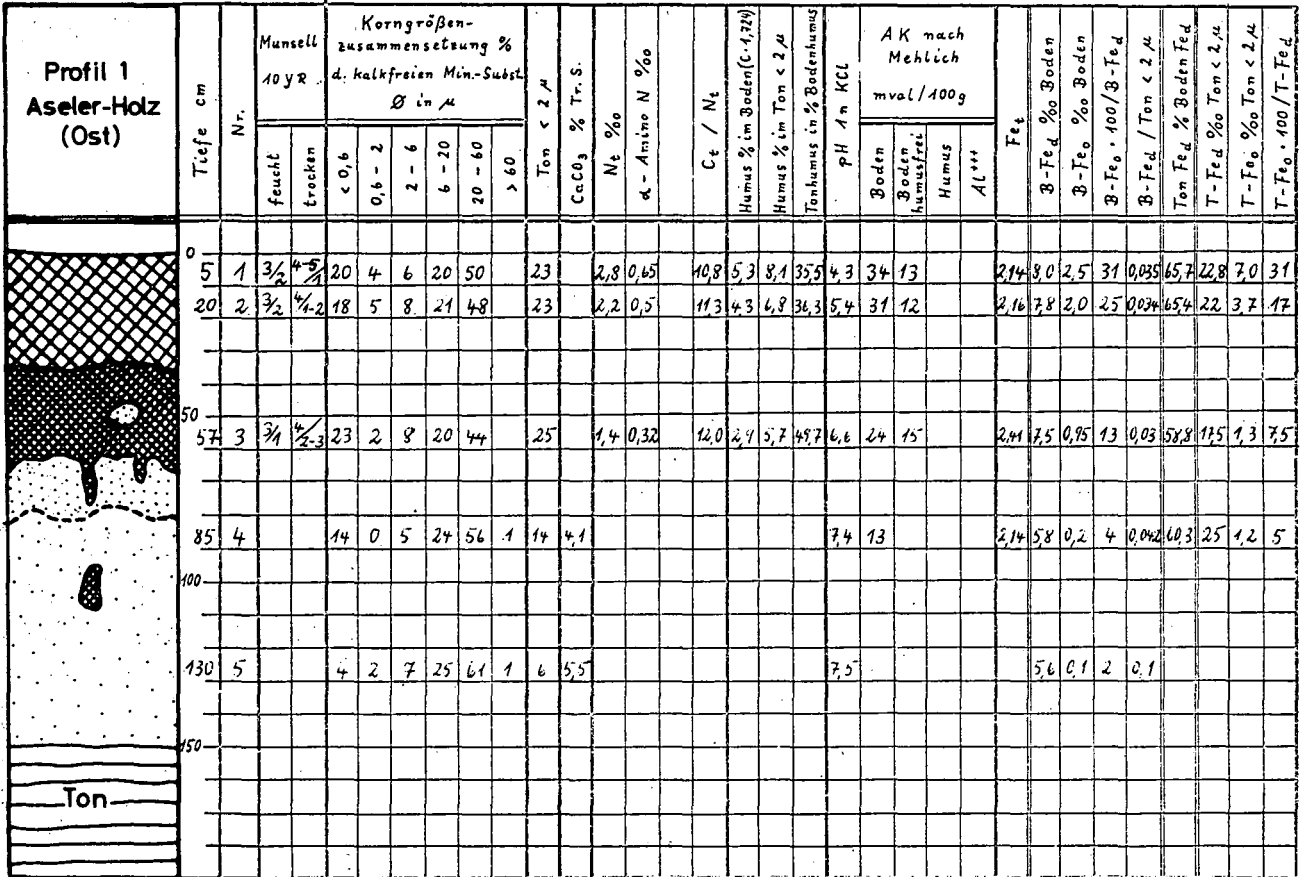 Profil 1
Aseler-Holz
(Ost)
Tiefe cm
Nr.
Munsell
10 YR
feucht
trocken
Korngrößen-
zusammensetzung %
d. kalkfreien Min.-Subst.
Ø in µ
< 0,6
0,6 - 2
2 - 6
6 - 20
20 - 60
> 60
Ton < 2 µ
CaCO3 % Tr. S.
Nt ‰
α - Amino N ‰
Ct / Nt
Humus % im Boden (C · 1,724)
Humus % im Ton < 2 µ
Tonhumus in % Bodenhumus
pH 1 n KCl
AK nach
Mehlich
mval / 100 g
Boden
Boden humusfrei
Humus
AL+++
Fet
B-Fed ‰ Boden
B-Feo ‰ Boden
B-Feo · 100 / B-Fed
B-Fed / Ton < 2 µ
Ton Fed % Boden Fed
T-Fed ‰ Ton < 2 µ
T-Feo ‰ Ton < 2 µ
T-Feo · 100 / T-Fed
0
5 1 3/2 4-5/1 20 4 6 20 50 23 2,8 0,65 10,8 5,3 8,1 35,5 4,3 34 13 2,14 8,0 2,5 31 0,035 65,7 22,8 7,0 31
20 2 3/2 4/1-2 18 5 8 21 48 23 2,2 0,5 11,3 4,3 6,8 36,3 5,4 31 12 2,16 7,8 2,0 25 0,034 65,4 22 3,7 17
50
57 3 3/1 4/2-3 23 2 8 20 44 25 1,4 0,32 12,0 2,9 5,7 49,7 6,6 24 15 2,41 7,5 0,95 13 0,03 58,8 17,5 1,3 7,5
85 4 14 0 5 24 56 1 14 4,1 7,4 13 2,14 5,8 0,2 4 0,042 60,3 25 1,2 5
100
130 5 4 2 7 25 61 1 6 5,5 7,5 5,6 0,1 2 0,1
150
Ton